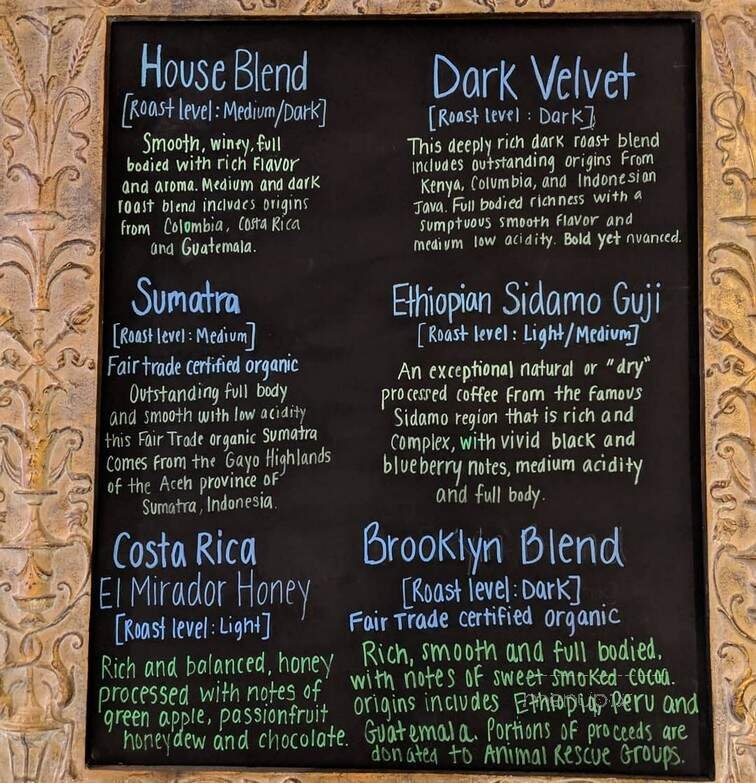 House Blend
[Roast level: Medium/Dark]
Smooth, winey, full
bodied with rich flavor
and aroma. Medium and dark
roast blend includes origins
from Colombia, Costa Rica
and Guatemala.
Dark Velvet
[Roast level: Dark]
This deeply rich dark roast blend
includes outstanding origins from
Kenya, Columbia, and Indonesian
Java. Full bodied richness with a
sumptuous smooth flavor and
medium low acidity. Bold yet nuanced.
Sumatra
[Roast level: Medium]
Fair trade certified organic
Outstanding full body
and smooth with low acidity
this Fair Trade organic Sumatra
comes from the Gayo Highlands
of the Aceh province of
Sumatra, Indonesia.
Ethiopian Sidamo Guji
[Roast level: Light/Medium]
An exceptional natural or "dry"
processed coffee from the famous
Sidamo region that is rich and
complex, with vivid black and
blueberry notes, medium acidity
and full body.
Costa Rica
El Mirador Honey
[Roast level: Light]
Rich and balanced, honey
processed with notes of
green apple, passionfruit
honeydew and chocolate.
Brooklyn Blend
[Roast level: Dark]
Fair Trade certified organic
Rich, smooth and full bodied,
with notes of sweet smoked cocoa.
origins includes Ethiopia, Peru and
Guatemala. Portions of proceeds are
donated to Animal Rescue Groups.